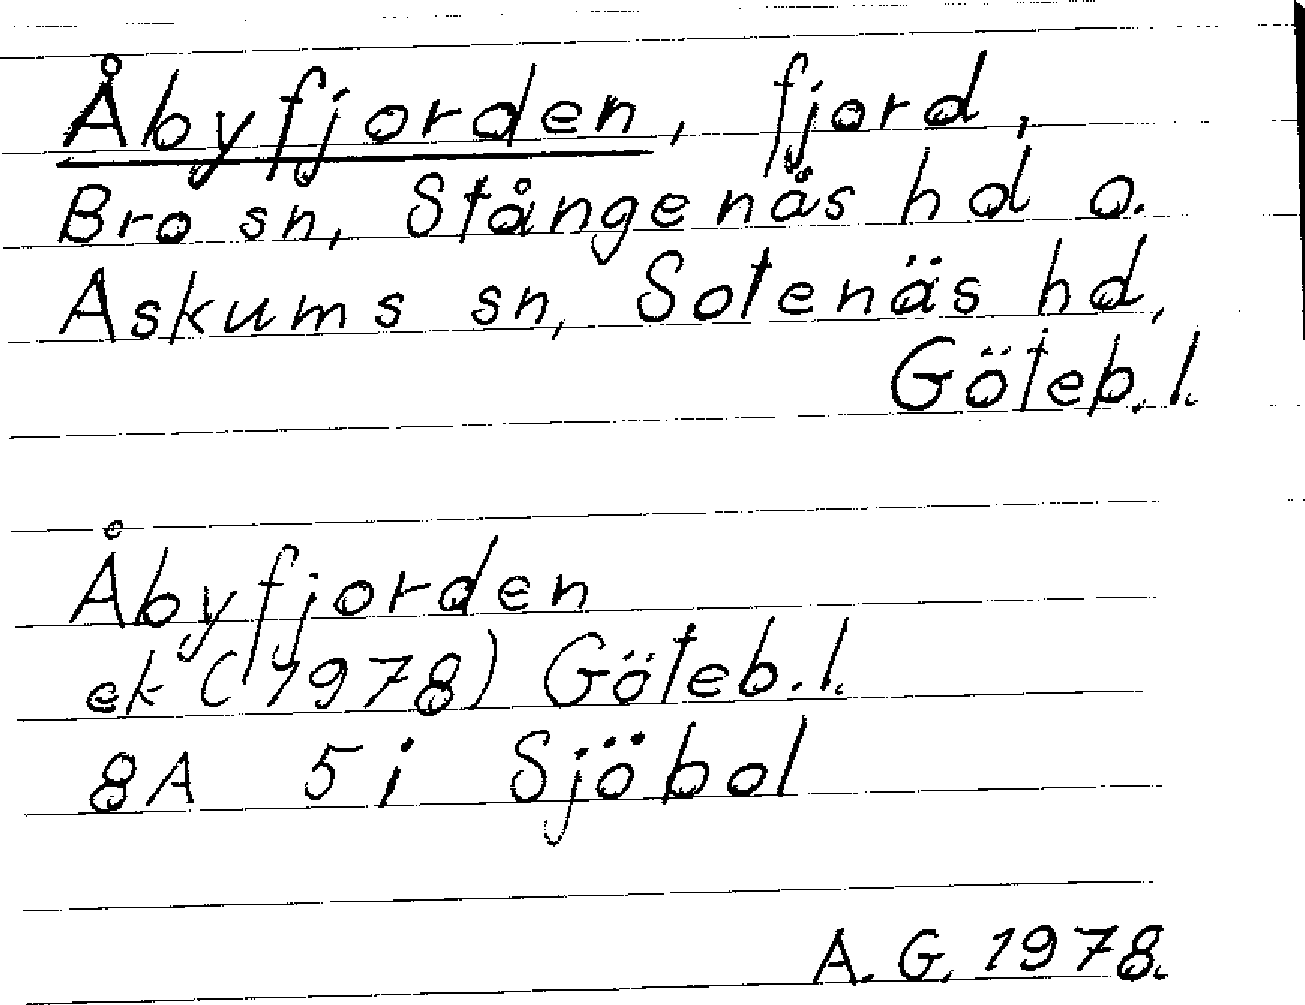 Åbyfjorden, fjord,
Bro sn, Stångenäs hd o.
Askums sn, Sotenäs hd,
Göteb. l.
Åbyfjorden
ek (1978) Göteb. l.
8A 5i Sjöbol
A. G. 1978.